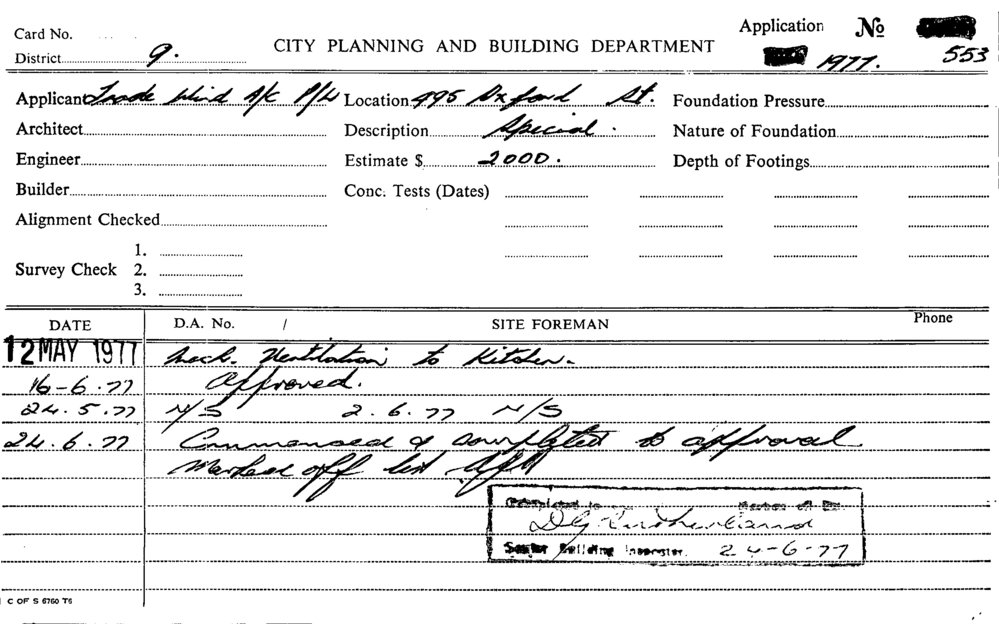 Card No. Application No
District 9. CITY PLANNING AND BUILDING DEPARTMENT 1977. 553
Applicant Trade Wind A/C P/L Location 495 Oxford St. Foundation Pressure
Architect Description Special. Nature of Foundation
Engineer Estimate $ 2000. Depth of Footings
Builder Conc. Tests (Dates)
Alignment Checked
1.
Survey Check 2.
3.
DATE D.A. No. / SITE FOREMAN Phone
12 MAY 1977 Mech. Ventilation to Kitchen.
16-6.77 Approved.
24.5.77 N/S 2.6.77 N/S
24.6.77 Commenced & completed to approval
Marked off list
Completed to Marked off
D G Rutherland
Senior Building Inspector. 24-6-77
C OF S 6760 T6